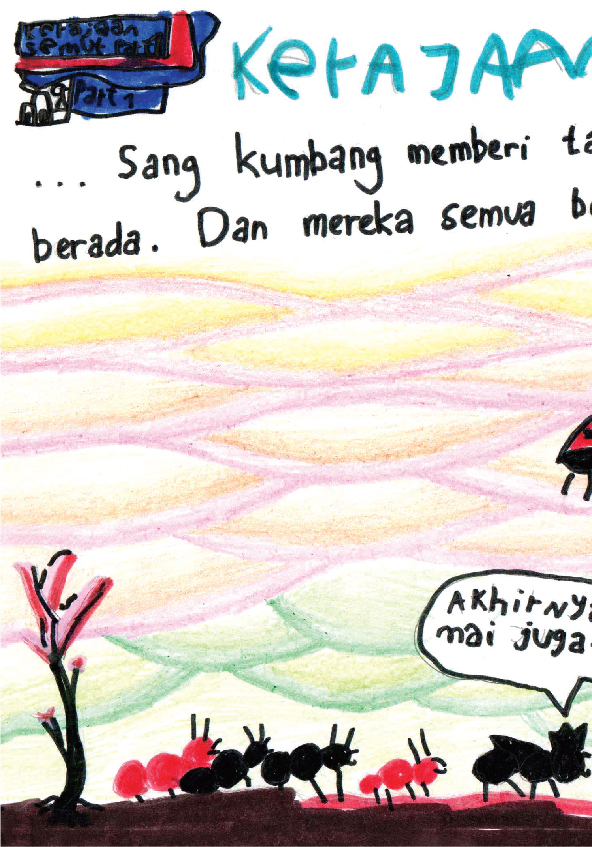 kerajaan
semut Part 1
Part 1
KerAJAAN
... Sang kumbang memberi ta
berada. Dan mereka semua be
AKhirNya
mai juga.